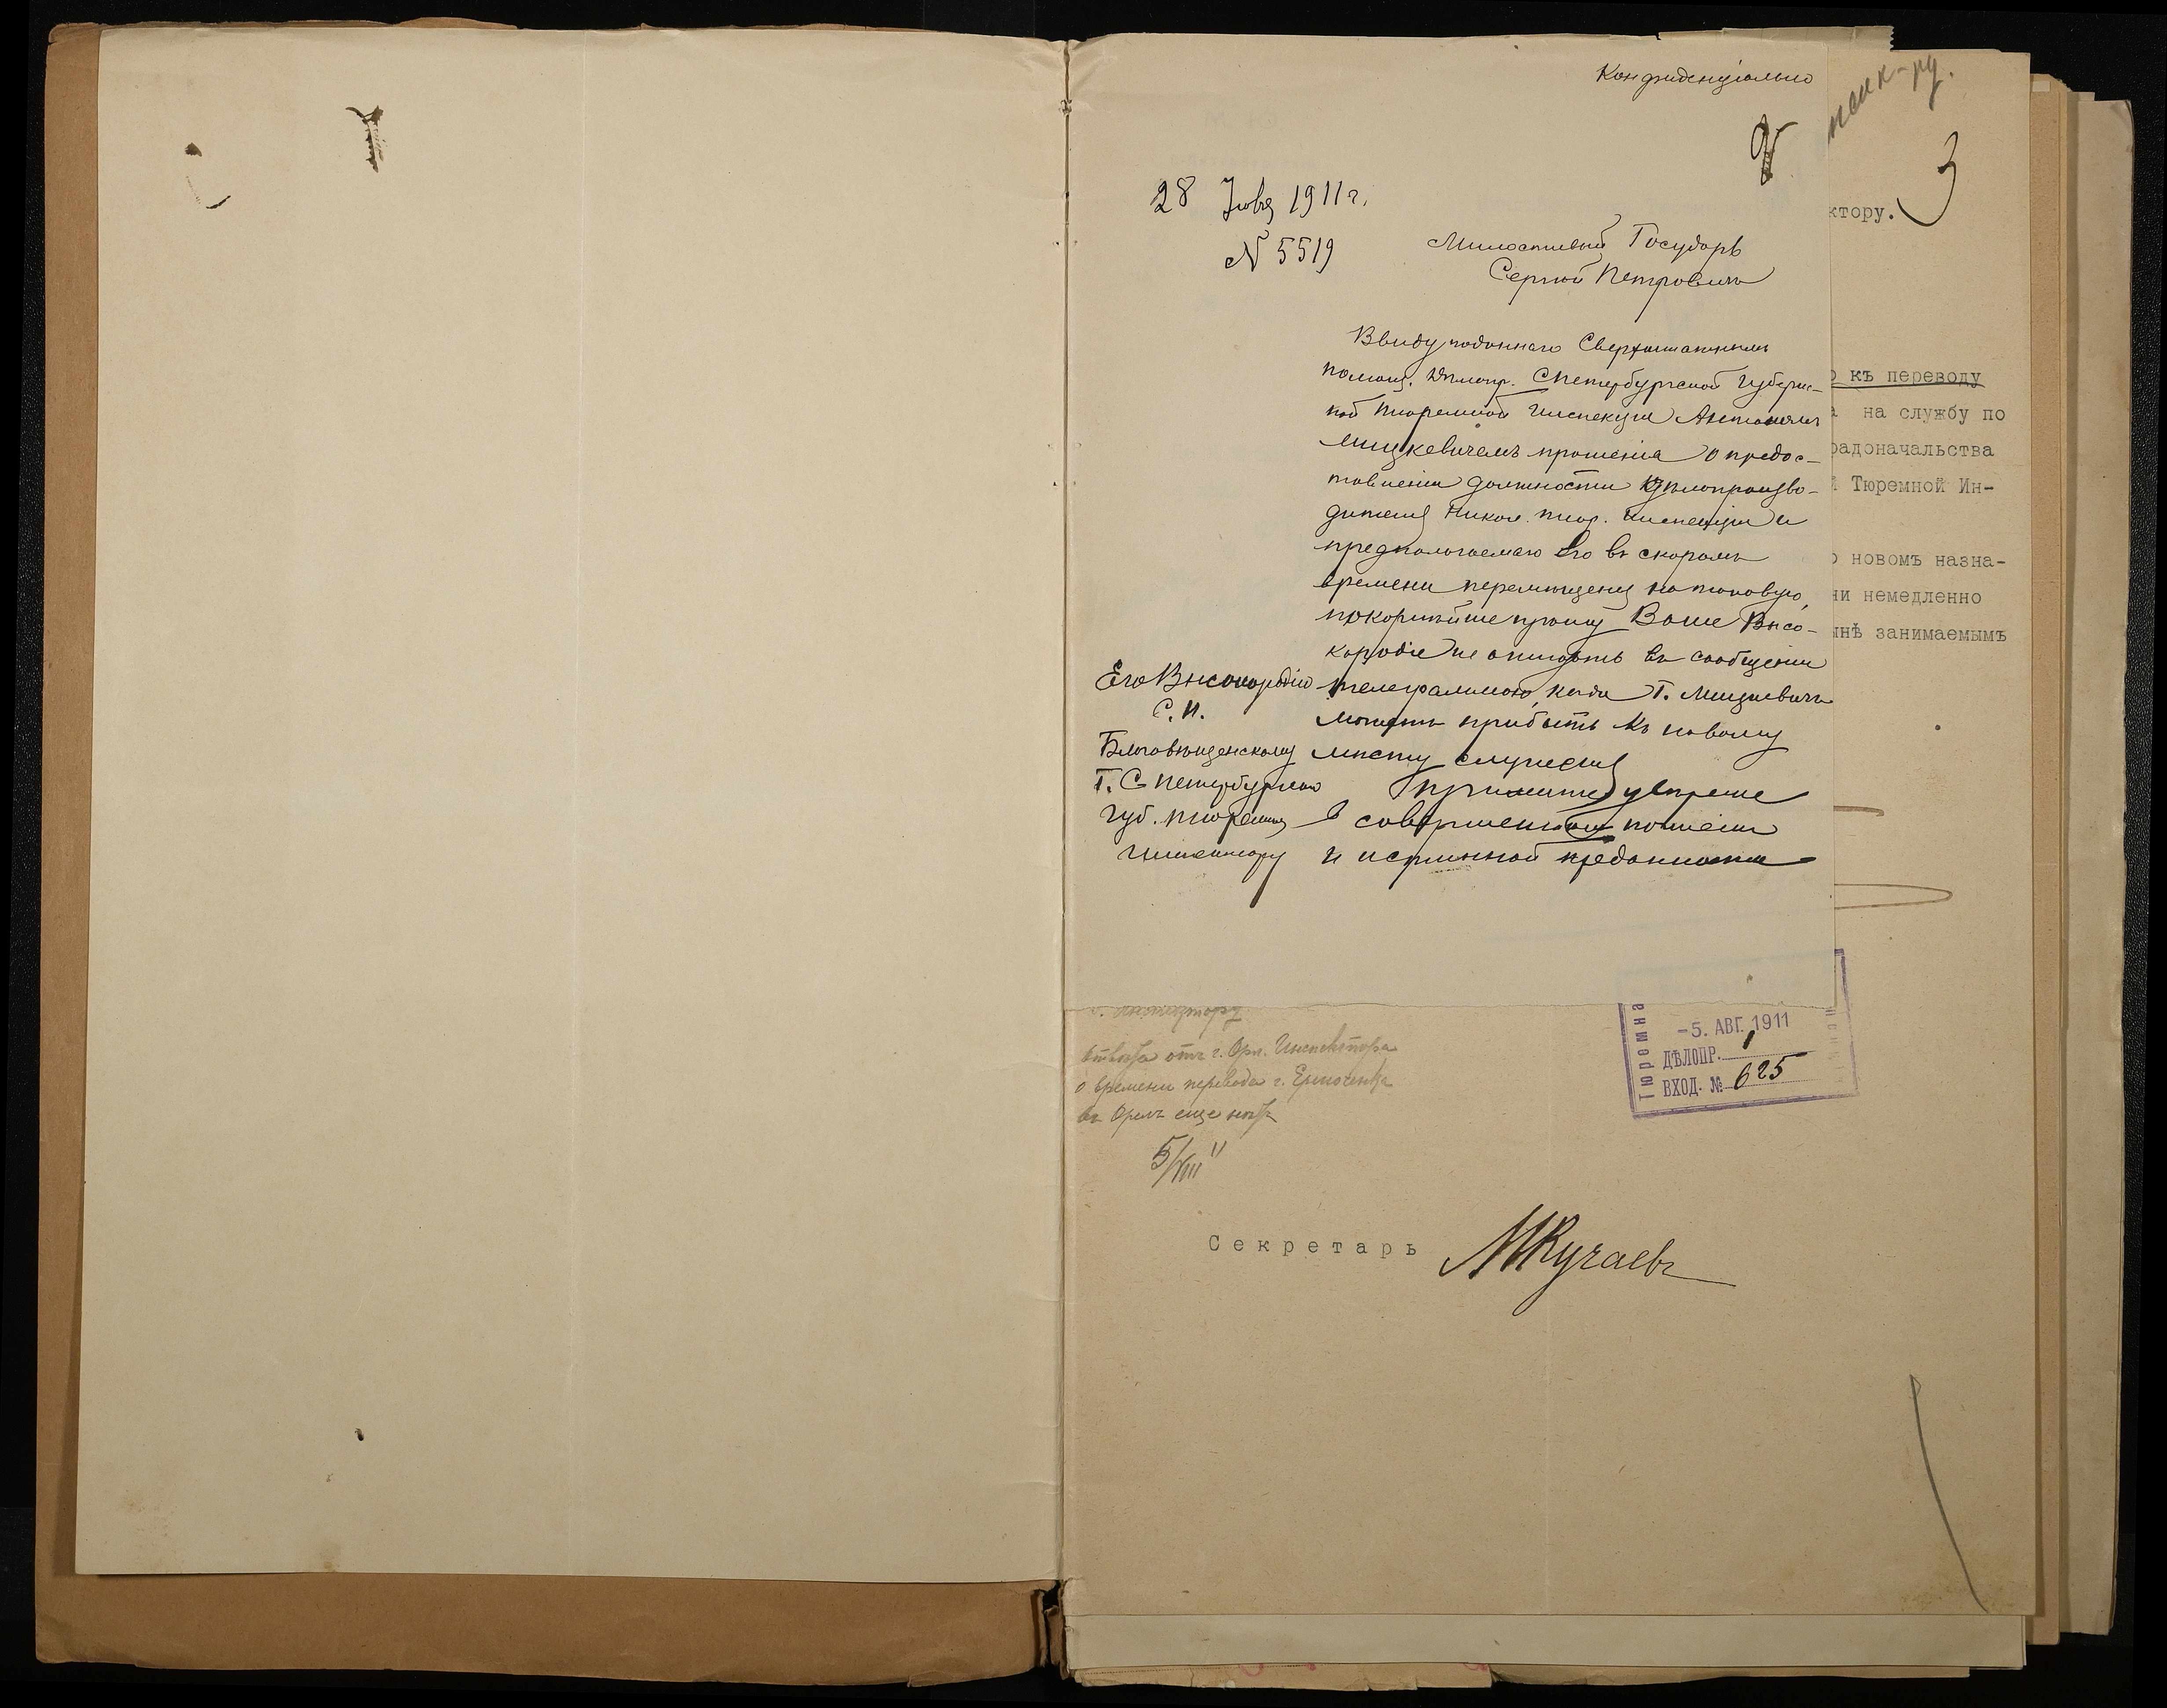 Конфиденціально
28 Іюля 1911 г.
№ 5519
Милостивый Государь
Сергѣй Петровичъ
Ввиду поданнаго Сверхштатнымъ
помощ. Дѣлопр. СПетербургской Губернс-
кой Тюремной Инспекціи Антономъ
Мицкевичемъ прошенія о предос-
тавленіи должности Дѣлопроизво-
дителя Никол. тюр. Инспекціи и
предполагаемаго его въ скоромъ
времени перемѣщенія на таковую,
покорнѣйше прошу Ваше Высо-
кородіе не отказать въ сообщеніи
телеграммою, когда Г. Мицкевичъ
можетъ прибыть къ новому
мѣсту служенія
Примите увѣреніе
в совершенномъ почтеніи
и истинной преданности
Его Высокородію
С. П.
Благовѣщенскому
Г. С Петербургско
Губ. тюремн
Инспектору
3
ктору.
къ переводу
на службу по
радоначальства
Тюремной Ин-
новомъ назна-
ни немедленно
ынѣ занимаемымъ
Отвѣта отъ г. Орл. Инспектора
о времени перевода г.
въ Орелъ еще нѣтъ
5/VIII 11
Тюремна
-5. АВГ. 1911
ДѢЛОПР. 1
ВХОД. № 625
Секретарь МКучаевъ